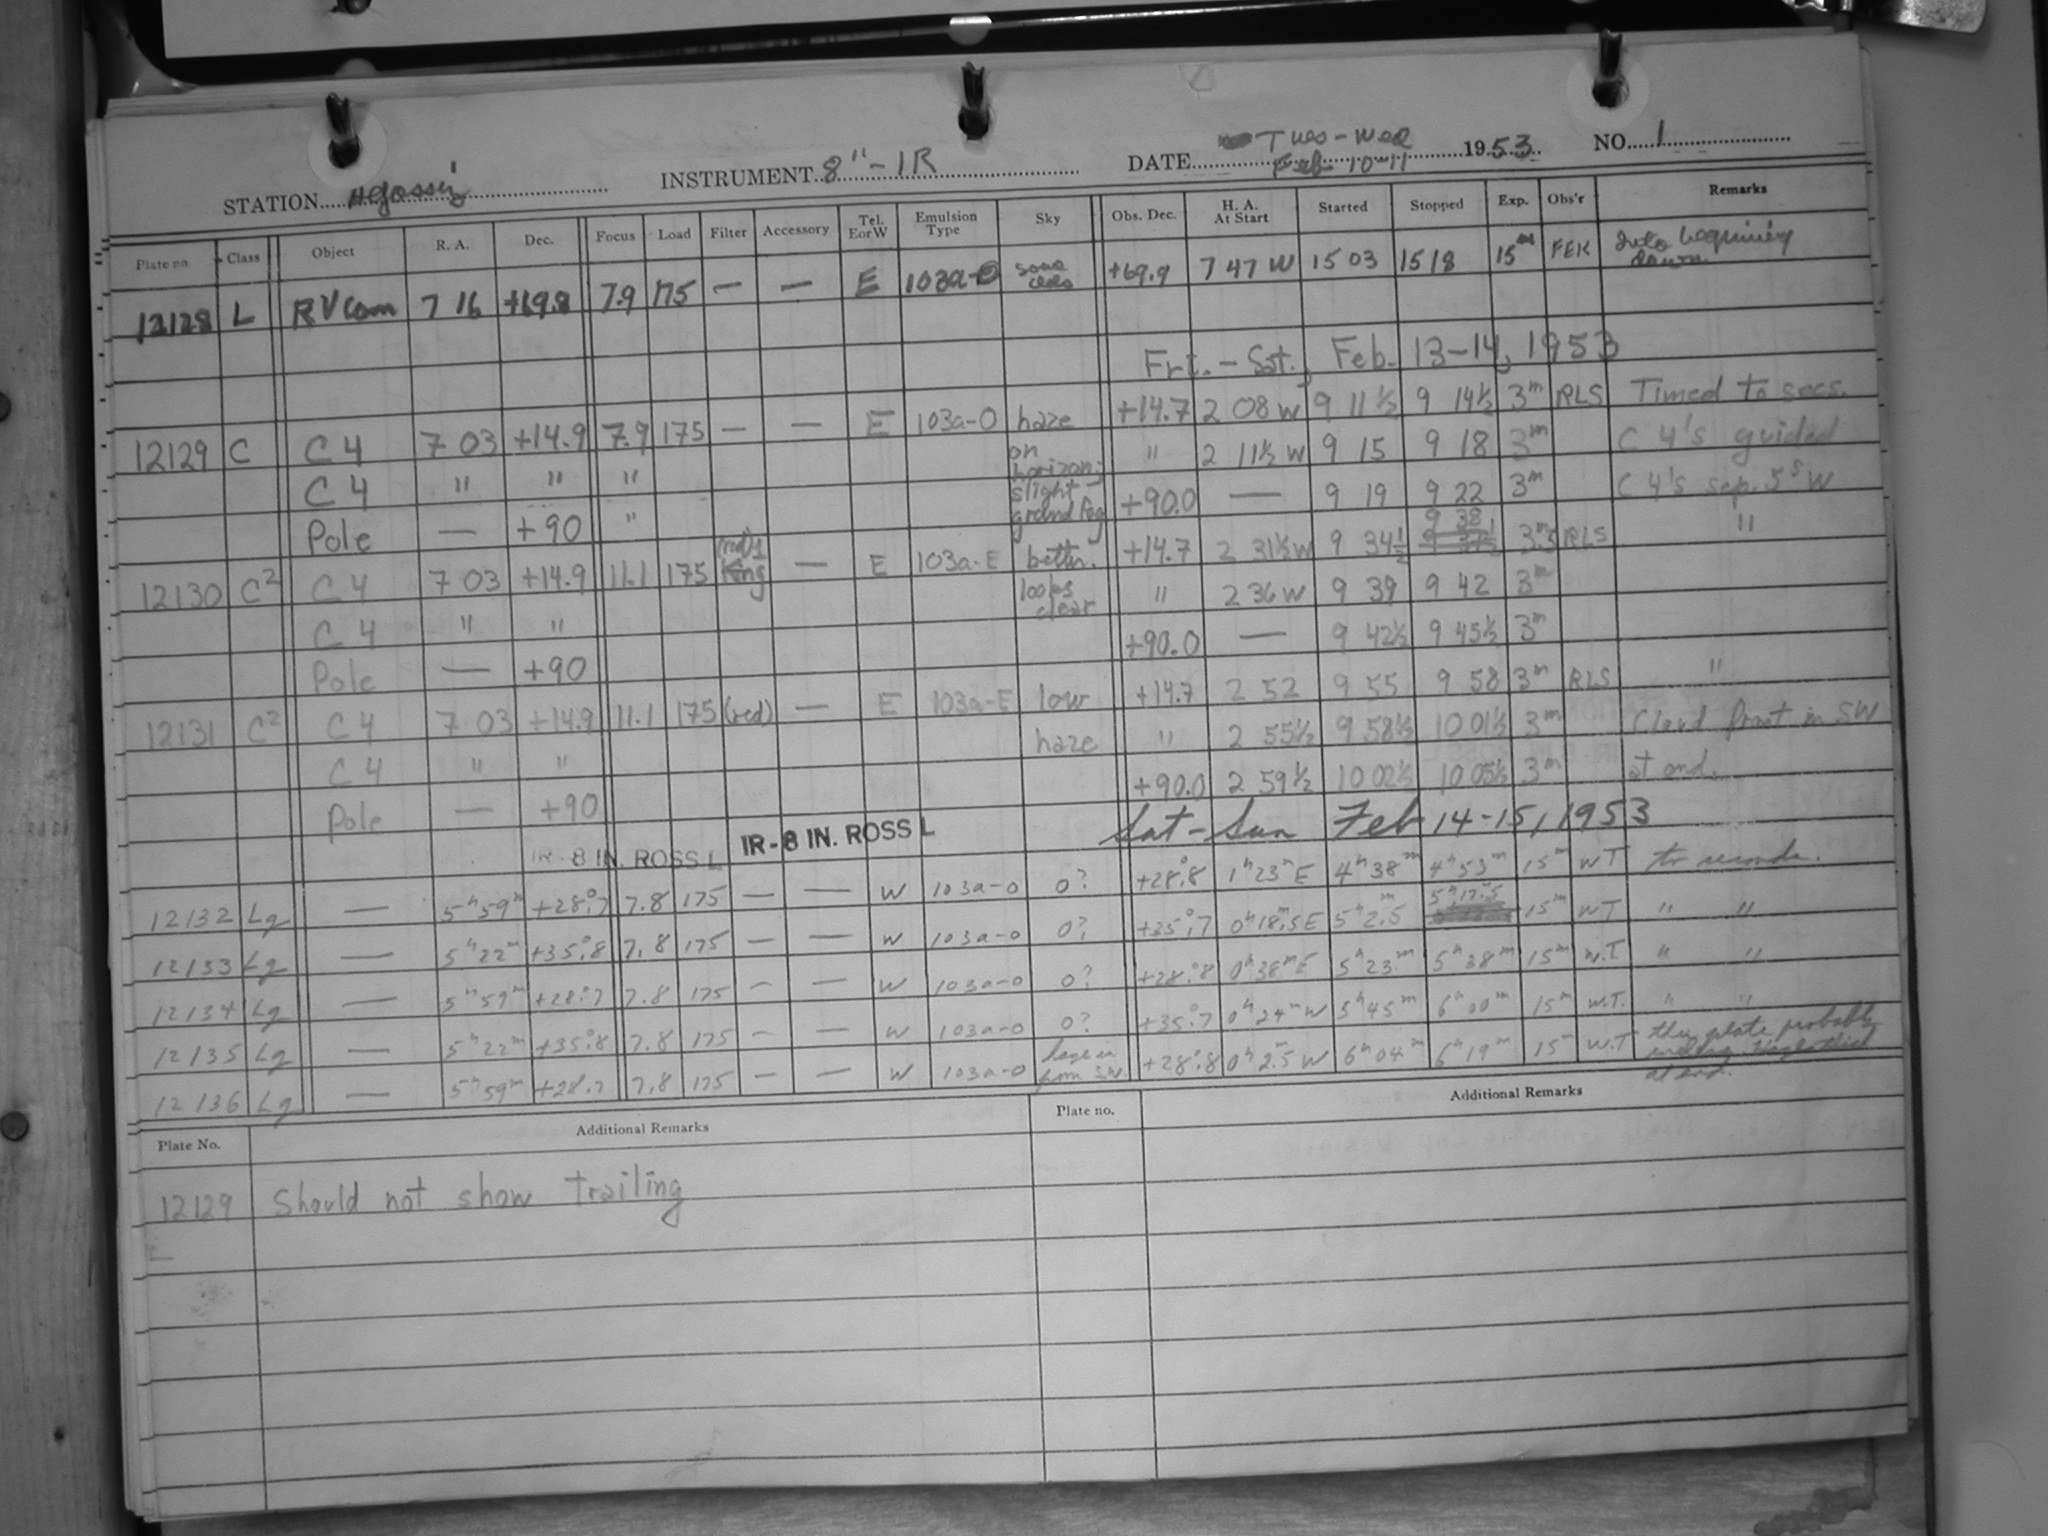 STATION Agassiz INSTRUMENT 8"-IR DATE Tues-Wed Feb 10-11 1953 NO. 1
Plate no. Class Object R. A. Dec. Focus Load Filter Accessory Tel. E or W Emulsion Type Sky Obs. Dec. H. A. At Start Started Stopped Exp. Obs'r Remarks
12128 L RV Cam 7 16 +69.8 7.9 175 — — E 103a-O some +69.9 7 47 W 15 03 15 18 15m FEK Into beginning dawn
Fri. - Sat., Feb. 13-14, 1953
12129 C C 4 7 03 +14.9 7.9 175 — — E 103a-O haze +14.7 2 08 W 9 11 1/2 9 14 1/2 3m RLS Timed to secs.
C 4 " " " on horizon; " 2 11 1/2 W 9 15 9 18 3m C 4's guided
Pole — +90 " slight ground fog +90.0 — 9 19 9 22 3m C 4's sep. 5s W
12130 C2 C 4 7 03 +14.9 11.1 175 (red) — E 103a-E bettr. +14.7 2 31 1/2 W 9 34 1/2 9 38 3m.5 RLS "
C 4 " " looks clear " 2 36 W 9 39 9 42 3m
Pole — +90 +90.0 — 9 42 1/2 9 45 1/2 3m
12131 C2 C 4 7 03 +14.9 11.1 175 (red) — E 103a-E low +14.7 2 52 9 55 9 58 3m RLS "
C 4 " " haze " 2 55 1/2 9 58 1/2 10 01 1/2 3m Cloud front in SW
Pole — +90 +90.0 2 59 1/2 10 02 1/2 10 05 1/2 3m at end.
IR - 8 IN. ROSS L IR - 8 IN. ROSS L Sat - Sun Feb 14-15, 1953
12132 Lg — 5h 59m +28°.7 7.8 175 — — W 103a-O 0? +28°.8 1h 23m E 4h 38m 4h 53m 15m WT to seconds.
12133 Lg — 5h 22m +35°.8 7.8 175 — — W 103a-O 0? +35°.7 0h 18m.5 E 5h 2m.5 5h 17m.5 15m WT " "
12134 Lg — 5h 59m +28°.7 7.8 175 — — W 103a-O 0? +28°.8 0h 38m E 5h 23m 5h 38m 15m W.T. " "
12135 Lg — 5h 22m +35°.8 7.8 175 — — W 103a-O 0? +35°.7 0h 24m W 5h 45m 6h 00m 15m W.T. " "
12136 Lg — 5h 59m +28.7 7.8 175 — — W 103a-O haze in from S.W. +28°.8 0h 2m.5 W 6h 04m 6h 19m 15m W.T this plate probably
at end.
Plate No. Additional Remarks Plate no. Additional Remarks
12129 Should not show trailing